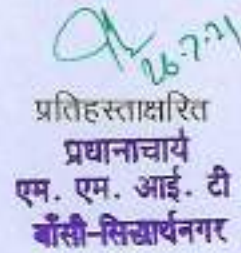 26.7.21
प्रतिहस्ताक्षरित
प्रधानाचार्य
एम. एम. आई. टी
बाँसी-सिद्धार्थनगर